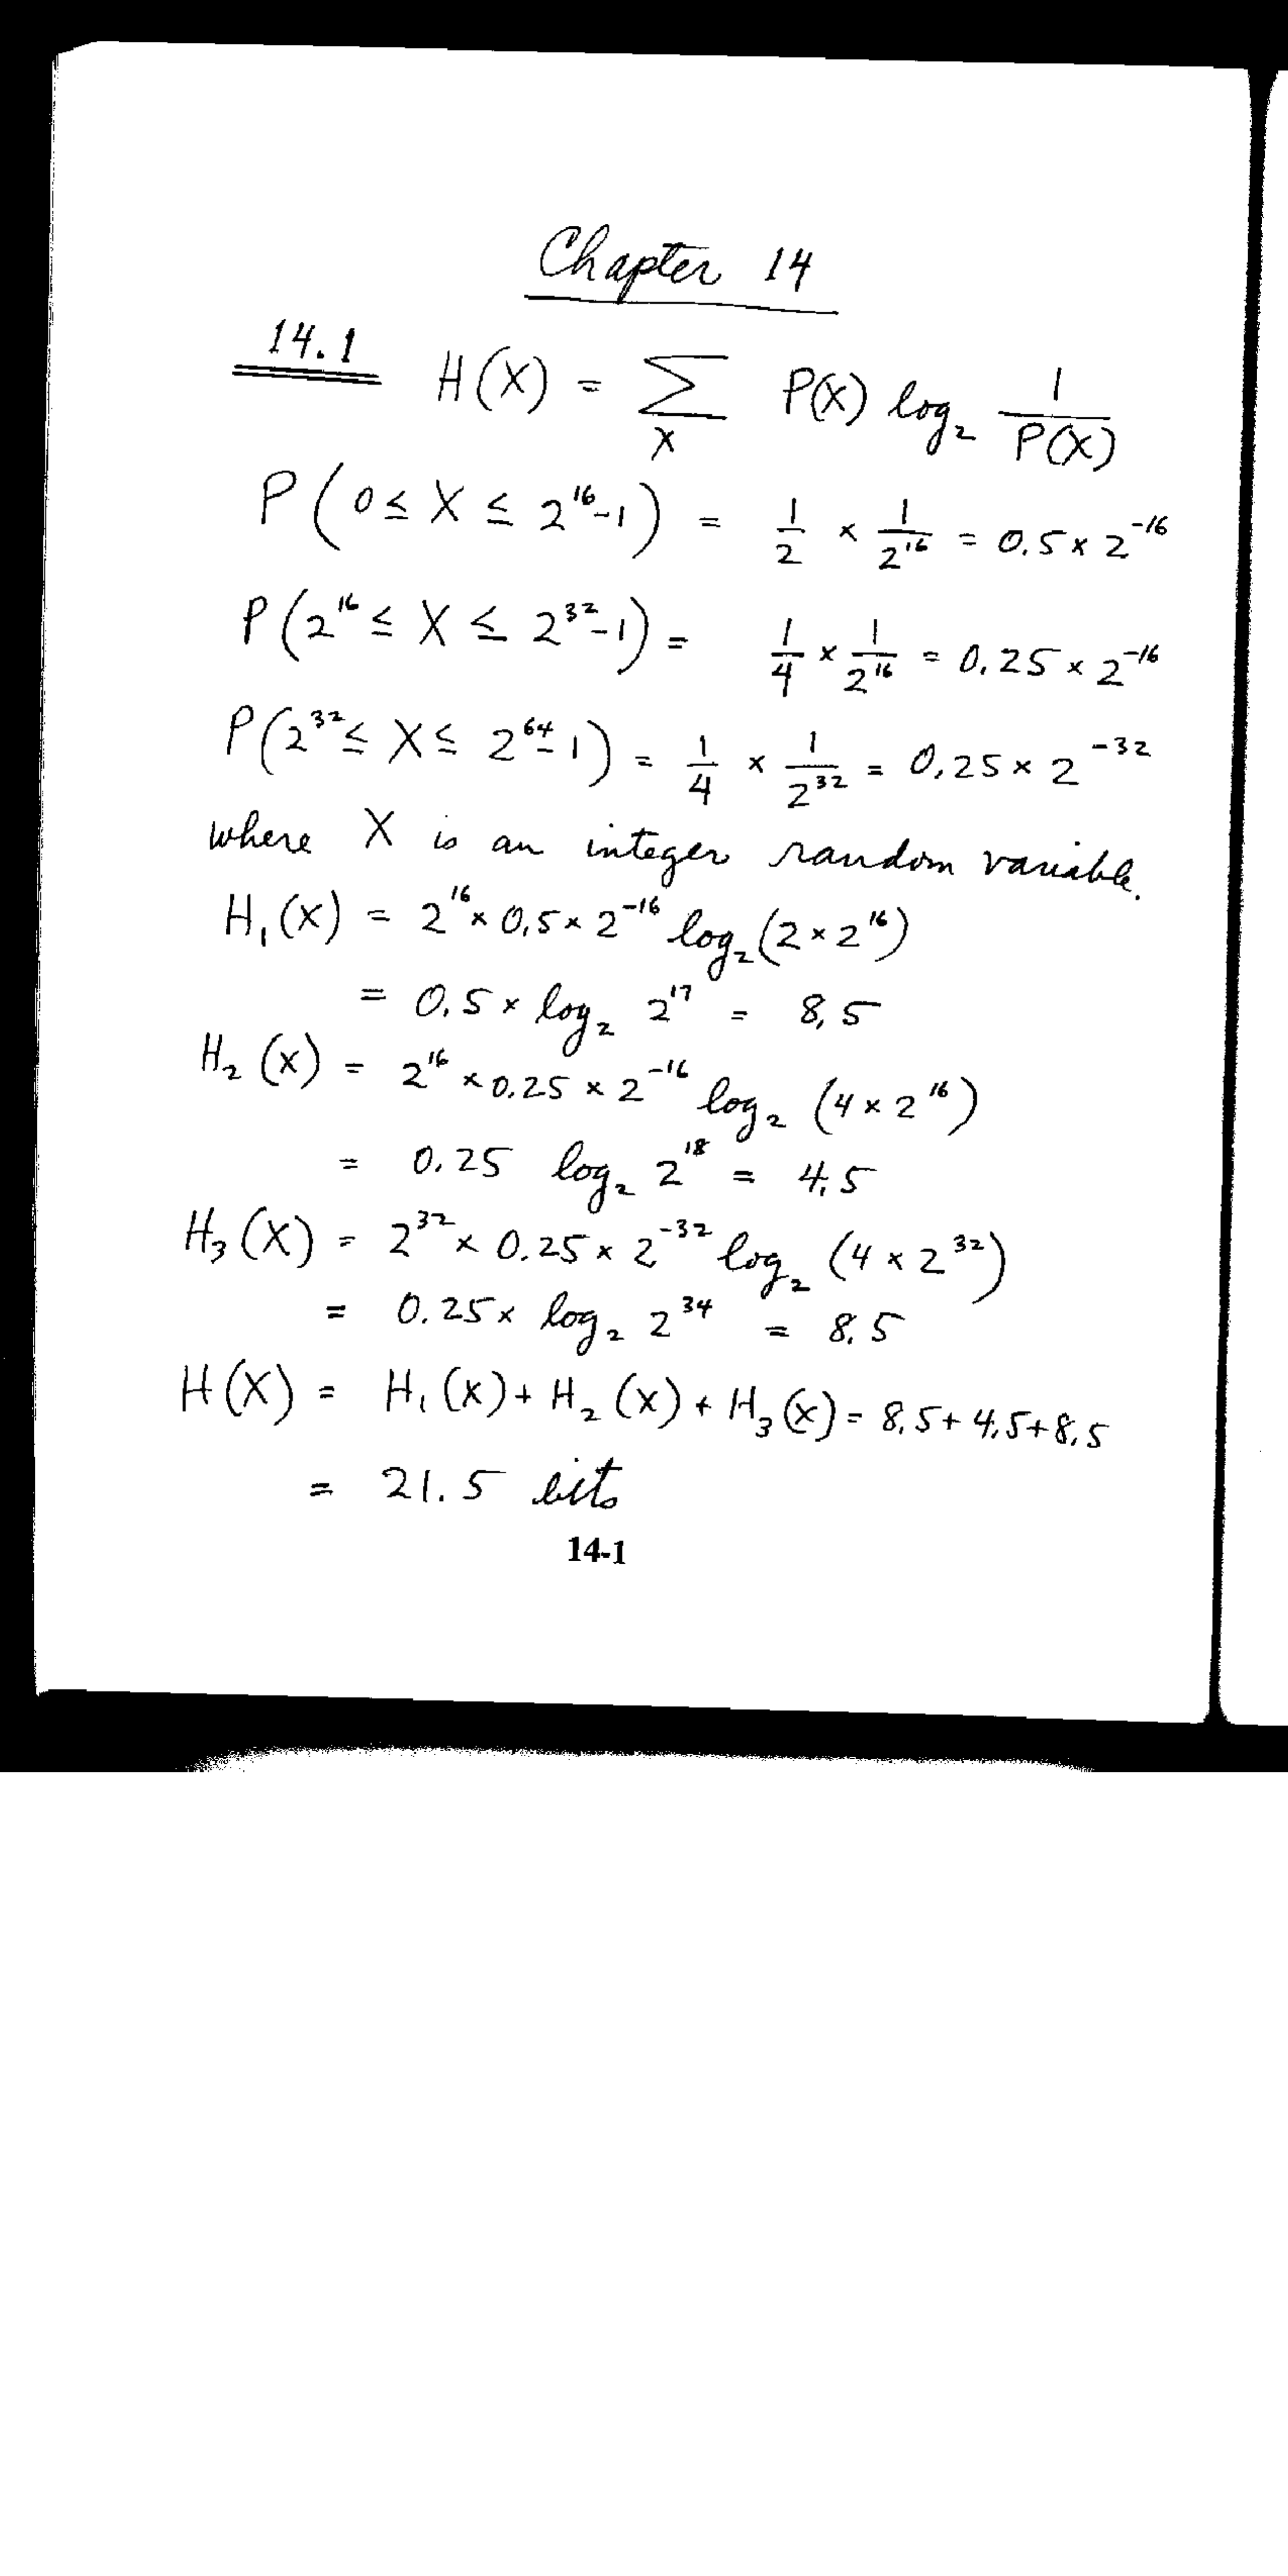 Chapter 14
14.1 H(X) = ∑_X P(X) log₂ 1/P(X)
P(0 ≤ X ≤ 2^16-1) = 1/2 × 1/2^16 = 0.5 × 2^-16
P(2^16 ≤ X ≤ 2^32-1) = 1/4 × 1/2^16 = 0.25 × 2^-16
P(2^32 ≤ X ≤ 2^64-1) = 1/4 × 1/2^32 = 0.25 × 2^-32
where X is an integer random variable.
H₁(X) = 2^16 × 0.5 × 2^-16 log₂(2 × 2^16)
= 0.5 × log₂ 2^17 = 8.5
H₂(X) = 2^16 × 0.25 × 2^-16 log₂(4 × 2^16)
= 0.25 log₂ 2^18 = 4.5
H₃(X) = 2^32 × 0.25 × 2^-32 log₂(4 × 2^32)
= 0.25 × log₂ 2^34 = 8.5
H(X) = H₁(X) + H₂(X) + H₃(X) = 8.5 + 4.5 + 8.5
= 21.5 bits
14-1